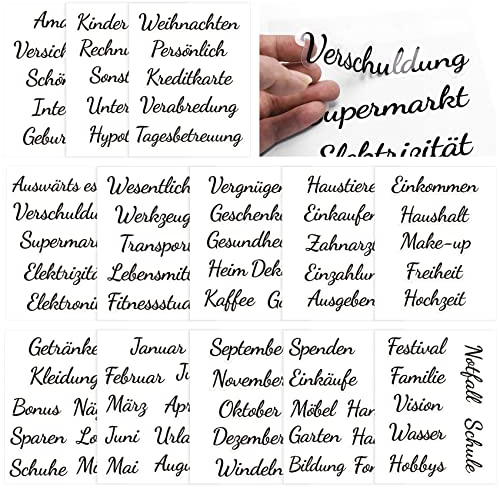 Ama
Versich
Schön
Inte
Gebur
Kinder
Rechnu
Sonst
Unter
Hypot
Weihnachten
Persönlich
Kreditkarte
Verabredung
Tagesbetreuung
Verschuldung
Supermarkt
Elektrizität
Auswärts es
Verschuldu
Supermar
Elektrizitä
Elektroni
Wesentlich
Werkzeug
Transport
Lebensmitt
Fitnessstud
Vergnüge
Geschenk
Gesundhe
Heim Dek
Kaffee Ga
Haustiere
Einkaufen
Zahnarz
Einzahlun
Ausgeben
Einkommen
Haushalt
Make-up
Freiheit
Hochzeit
Getränke
Kleidung
Bonus Nä
Sparen Lo
Schuhe Me
Januar
Februar Ju
März Apr
Juni Urla
Mai Augu
September
November
Oktober
Dezember
Windeln
Spenden
Einkäufe
Möbel Han
Garten Ha
Bildung For
Festival
Familie
Vision
Wasser
Hobbys
Notfall
Schule